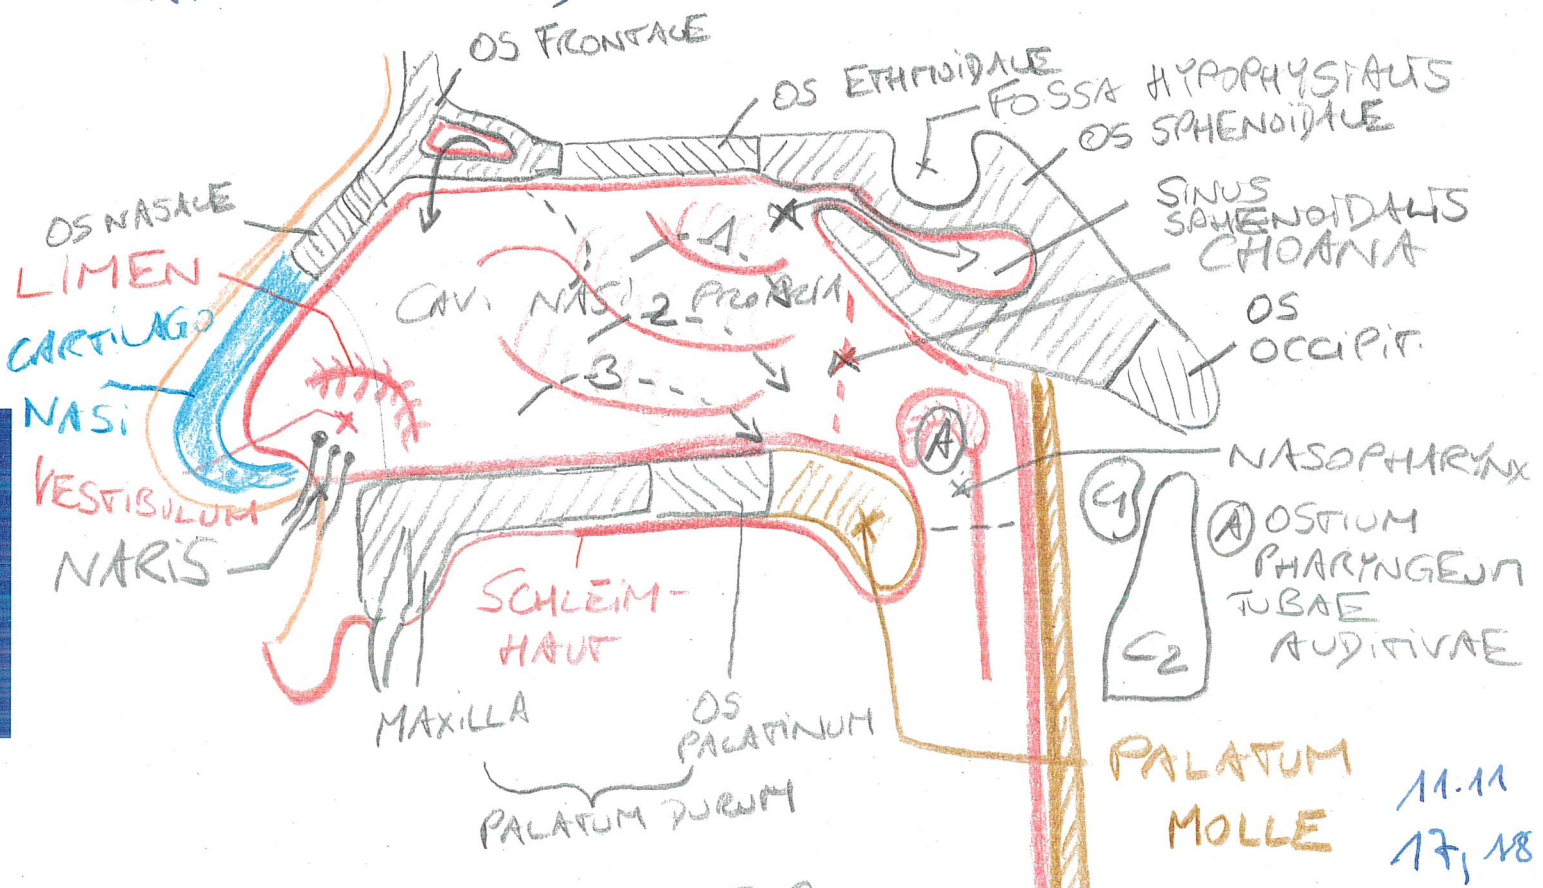 OS FRONTALE
OS ETHMOIDALE
FOSSA HYPOPHYSIALIS
OS SPHENOIDALE
SINUS
SPHENOIDALIS
CHOANA
OS
OCCIPIT.
OS NASALE
LIMEN
CARTILAGO
NASI
VESTIBULUM
NARIS
CAVI NASI PROPRIA
1
2
3
A
NASOPHARYNX
C1
A OSTIUM
PHARYNGEUM
TUBAE
AUDITIVAE
C2
SCHLEIM-
HAUT
MAXILLA
OS
PALATINUM
PALATUM DURUM
PALATUM
MOLLE
11.11
17, 18